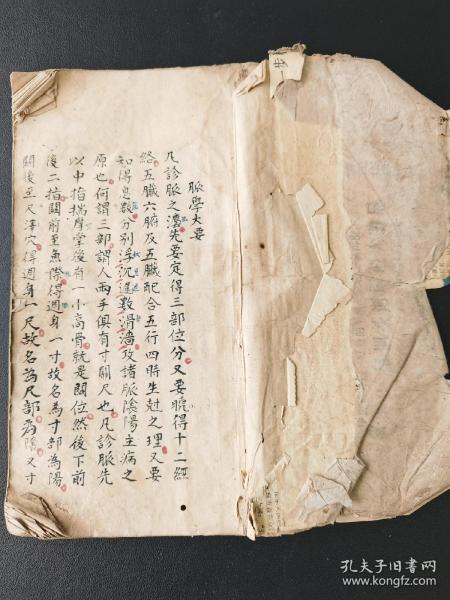 脈學大要
凡診脈之濇先要定得三部位分又要曉得十二經
絡五臟六腑及五臟配合五行四時生尅之理又要
知得息數分別浮沉遲數滑濇攻諸脈陰陽主病之
原也何謂三部謂人兩手俱有寸關尺也凡診脈先
以中指揣摩掌後有一小高骨就是關位然後下前
後二指關前至魚際得週身一寸故名為寸部為陽
關後至尺澤穴得週身一尺故名為尺部為陰又寸
孔夫子旧书网
www.kongfz.com